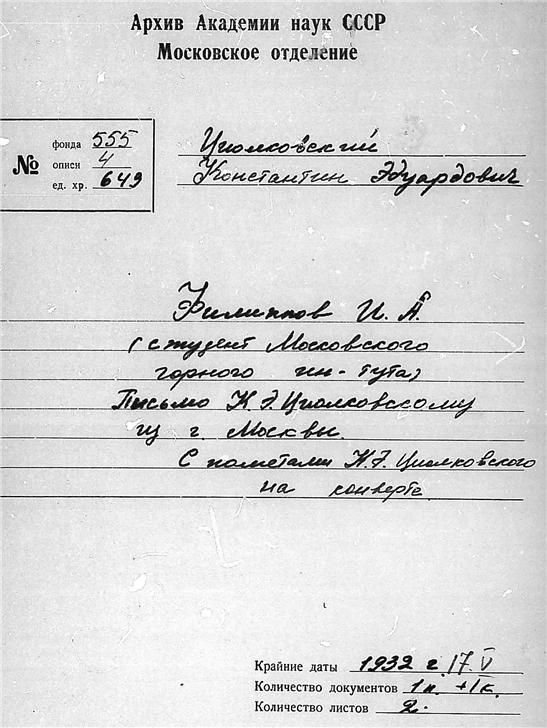 Архив Академии наук СССР
Московское отделение
№
фонда 555
описи 4
ед. хр. 649
Циолковский
Константин Эдуардович
Филиппов И. А.
(студент Московского
горного ин-тута)
Письмо К.Э. Циолковскому
из г. Москвы.
С пометами К.Э. Циолковского
на конверте
Крайние даты 1932 г. 17.V
Количество документов 1п. + 1к.
Количество листов 2.